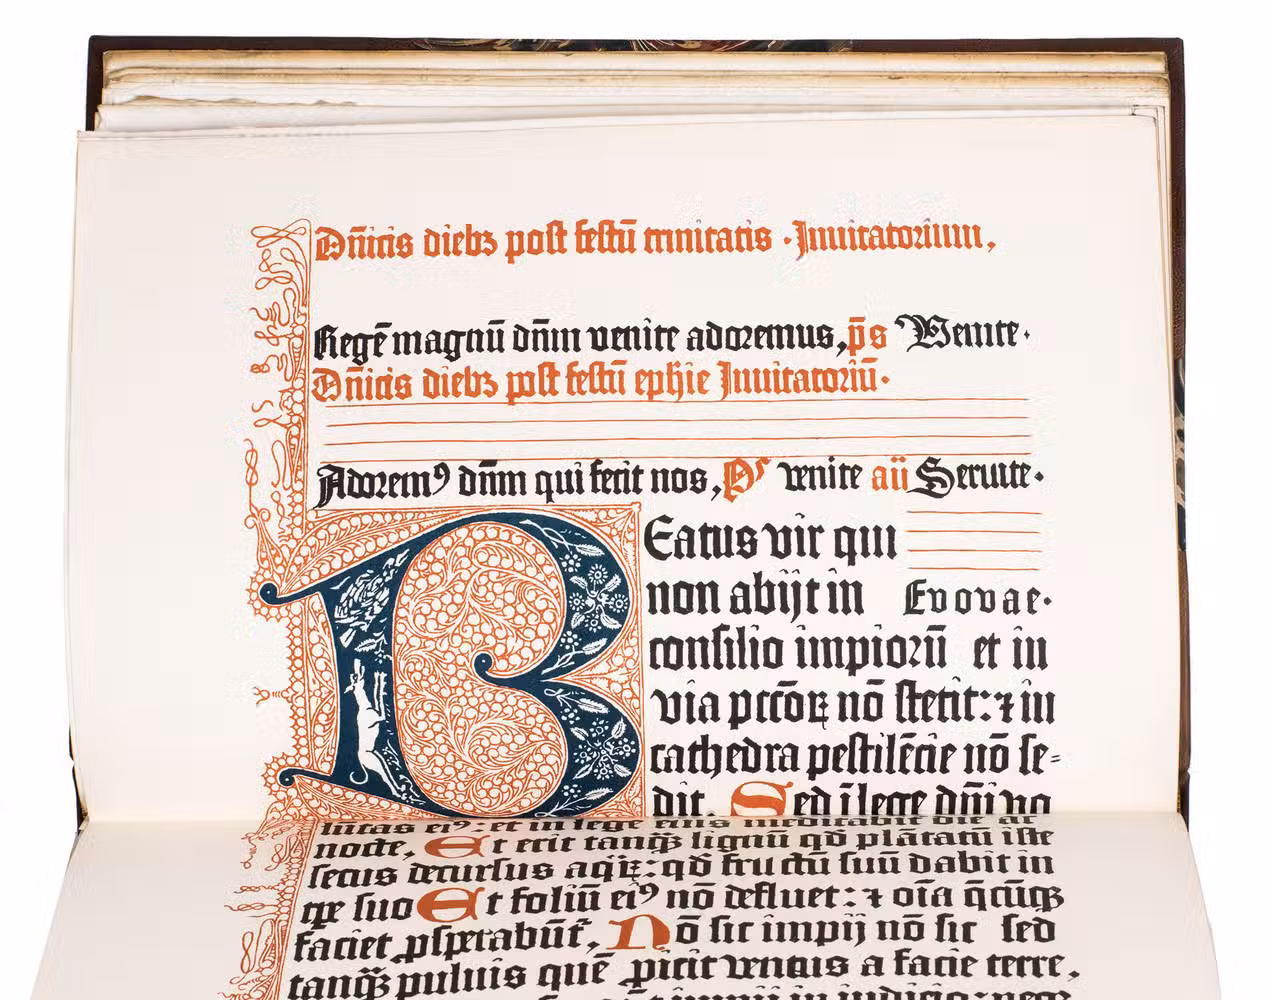 Dn̄icis diebꝫ post festū trinitatis · Inuitatorium,
Regē magnū dn̄m venite adoremus, p̄s Venite.
Dn̄icis diebꝫ post festū ephie Inuitatoriū·
Adoremꝰ dn̄m qui fecit nos, Ps venite aīi Seruite.
BEatus vir qui
non abijt in Evovae.
consilio impioꝛū et in
via pccōꝝ nō stetit: ⁊ in
cathedra pestilēcie nō se=
dit. Sed ī lege dn̄i vo
luntas eiꝰ: et in lege eius meditabit die ac
nocte, Et erit tanqꝫ lignū qd̄ plātatū iste
secus decursus aqꝝ: qd̄ fructū suū dabit in
tꝑe suo Et foliū eiꝰ nō defluet: ⁊ oīa q̄cūqꝫ
faciet ꝓsꝑabūt, Nō sic impij nō sic sed
tanqꝫ puluis quē ꝓicit ventus a facie terre.